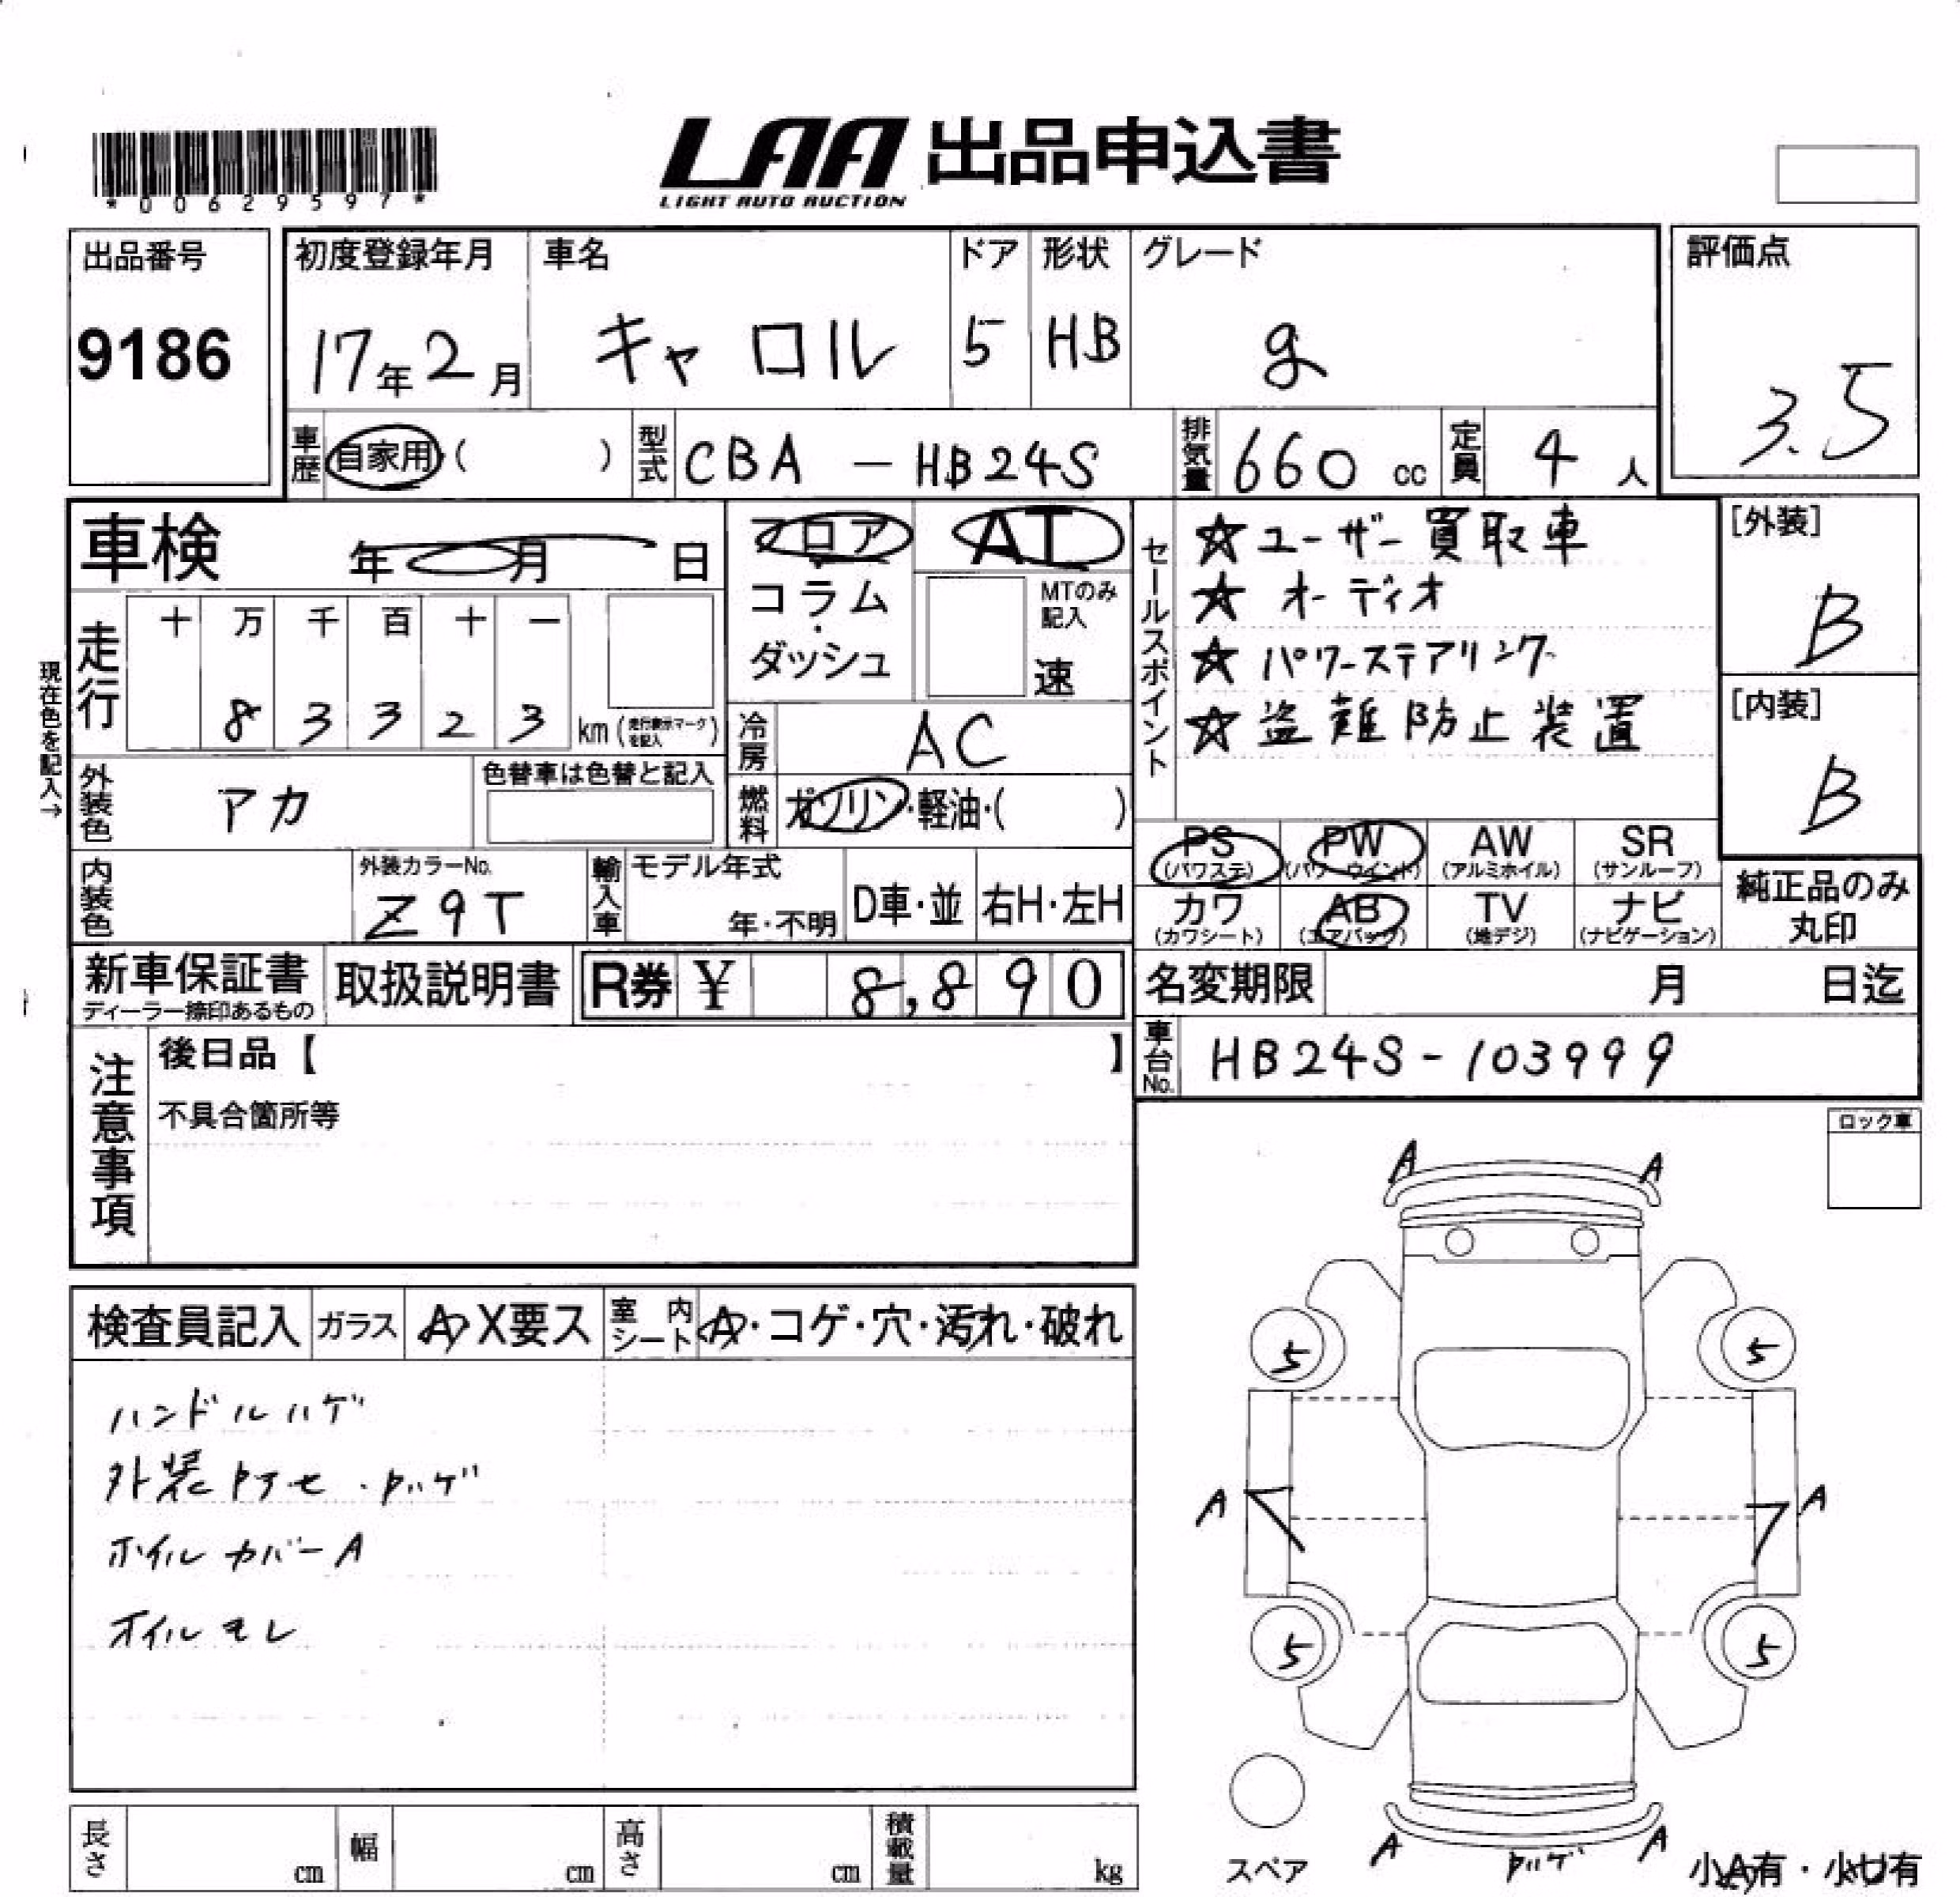 *00629597*
LAA 出品申込書
LIGHT AUTO AUCTION
出品番号
9186
初度登録年月
17年2月
車名
キャロル
ドア
5
形状
HB
グレード
g
評価点
3.5
車歴
自家用 ( )
型式
CBA - HB24S
排気量
660 cc
定員
4 人
車検 年 月 日
フロア・
コラム
・
ダッシュ
AT
MTのみ
記入
速
セールスポイント
☆ ユーザー買取車
☆ オーディオ
☆ パワーステアリング
☆ 盗難防止装置
[外装]
B
[内装]
B
現在色を記入→
走行
十 万 千 百 十 一
8 3 3 2 3 km (走行表示マークを記入)
冷房
AC
外装色
アカ
色替車は色替と記入
燃料
ガソリン・軽油・( )
PS
(パワステ)
PW
(パワーウインド)
AW
(アルミホイル)
SR
(サンルーフ)
カワ
(カワシート)
AB
(エアバッグ)
TV
(地デジ)
ナビ
(ナビゲーション)
純正品のみ
丸印
内装色
外装カラーNo.
Z9T
輸入車
モデル年式
年・不明
D車・並
右H・左H
新車保証書
ディーラー捺印あるもの
取扱説明書
R券 ¥ 8,890
名変期限 月 日迄
車台No.
HB24S-103999
注意事項
後日品【 】
不具合箇所等
ロック車
検査員記入
ガラス
A X要ス
室内
シート
A・コゲ・穴・汚れ・破れ
ハンドルハゲ
外装
ホイルカバーA
オイルモレ
A A
5 5
A A
5 5
スペア
A A
小A有・小U有
長さ cm
幅 cm
高さ cm
積載量 kg